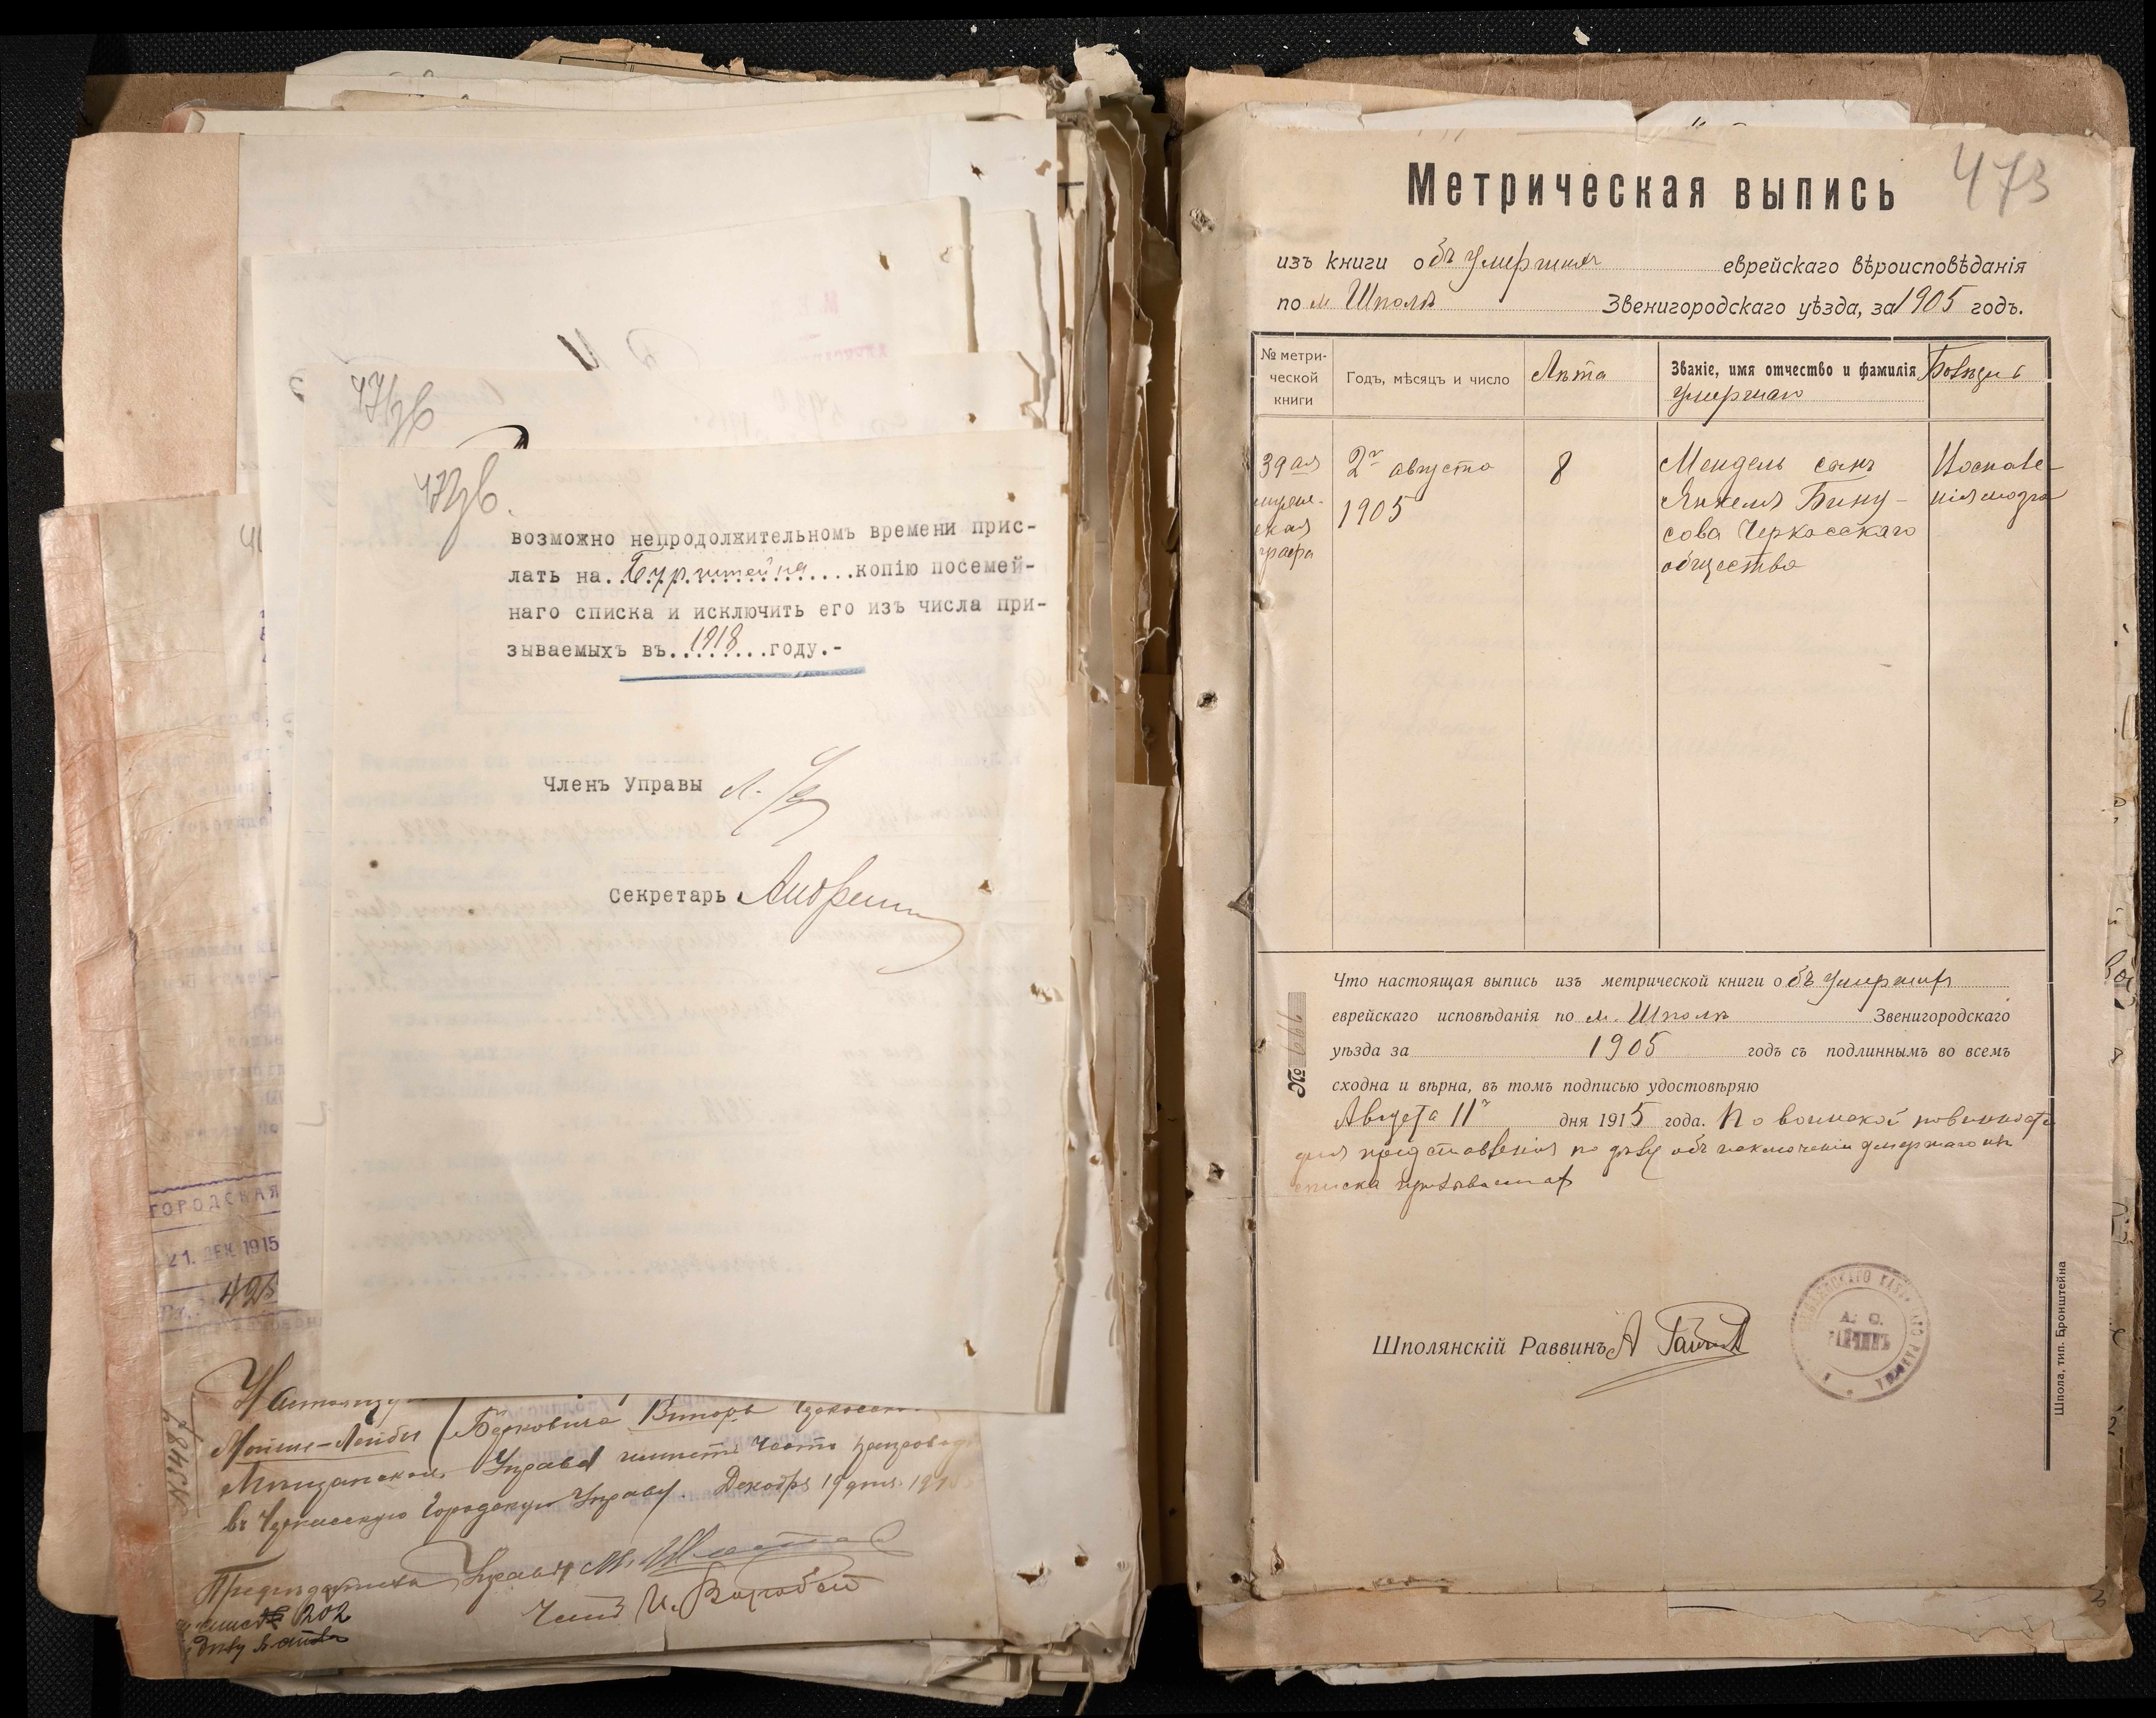 47/зв
472/зв.
возможно непродолжительномъ времени прис-
лать на..Бурштейна....копію посемей-
наго списка и исключить его изъ числа при-
зываемыхъ въ..1918...году.-
Членъ Управы
Секретарь
ГОРОДСКАЯ
21. ДЕК 1915
425
№3487
Мойше-Лейбы Берковича
Мѣщанская Управа имѣетъ честь препровод
въ Черкасскую Городскую Управу. Декабря 19 дня 191
Предсѣдатель Управы М.
Членъ И. Воробей
202
473
Метрическая выпись
изъ книги объ умершихъ еврейскаго вѣроисповѣданія
по м Шполѣ Звенигородскаго уѣзда, за 1905 годъ.
№ метри-
ческой
книги
Годъ, мѣсяцъ и число
Лѣта
Званіе, имя отчество и фамилія
умершаго
Болѣзнь
39 ая
мужес-
кая
графа
2го августа
1905
8
Мендель сынъ
Янкеля Бину-
сова Черкасскаго
общества
Воспале-
нія мозга
Что настоящая выпись изъ метрической книги объ умершихъ
еврейскаго исповѣданія по м. Шполѣ Звенигородскаго
уѣзда за 1905 годъ съ подлиннымъ во всемъ
сходна и вѣрна, въ томъ подписью удостовѣряю
Августа 11го дня 1915 года. По воинской повинности
для представленія по дѣлу объ исключеніи умершаго изъ
списка призываемыхъ
№ 666
Шполянскій Раввинъ А
А. С.
Шпола, тип. Бронштейна